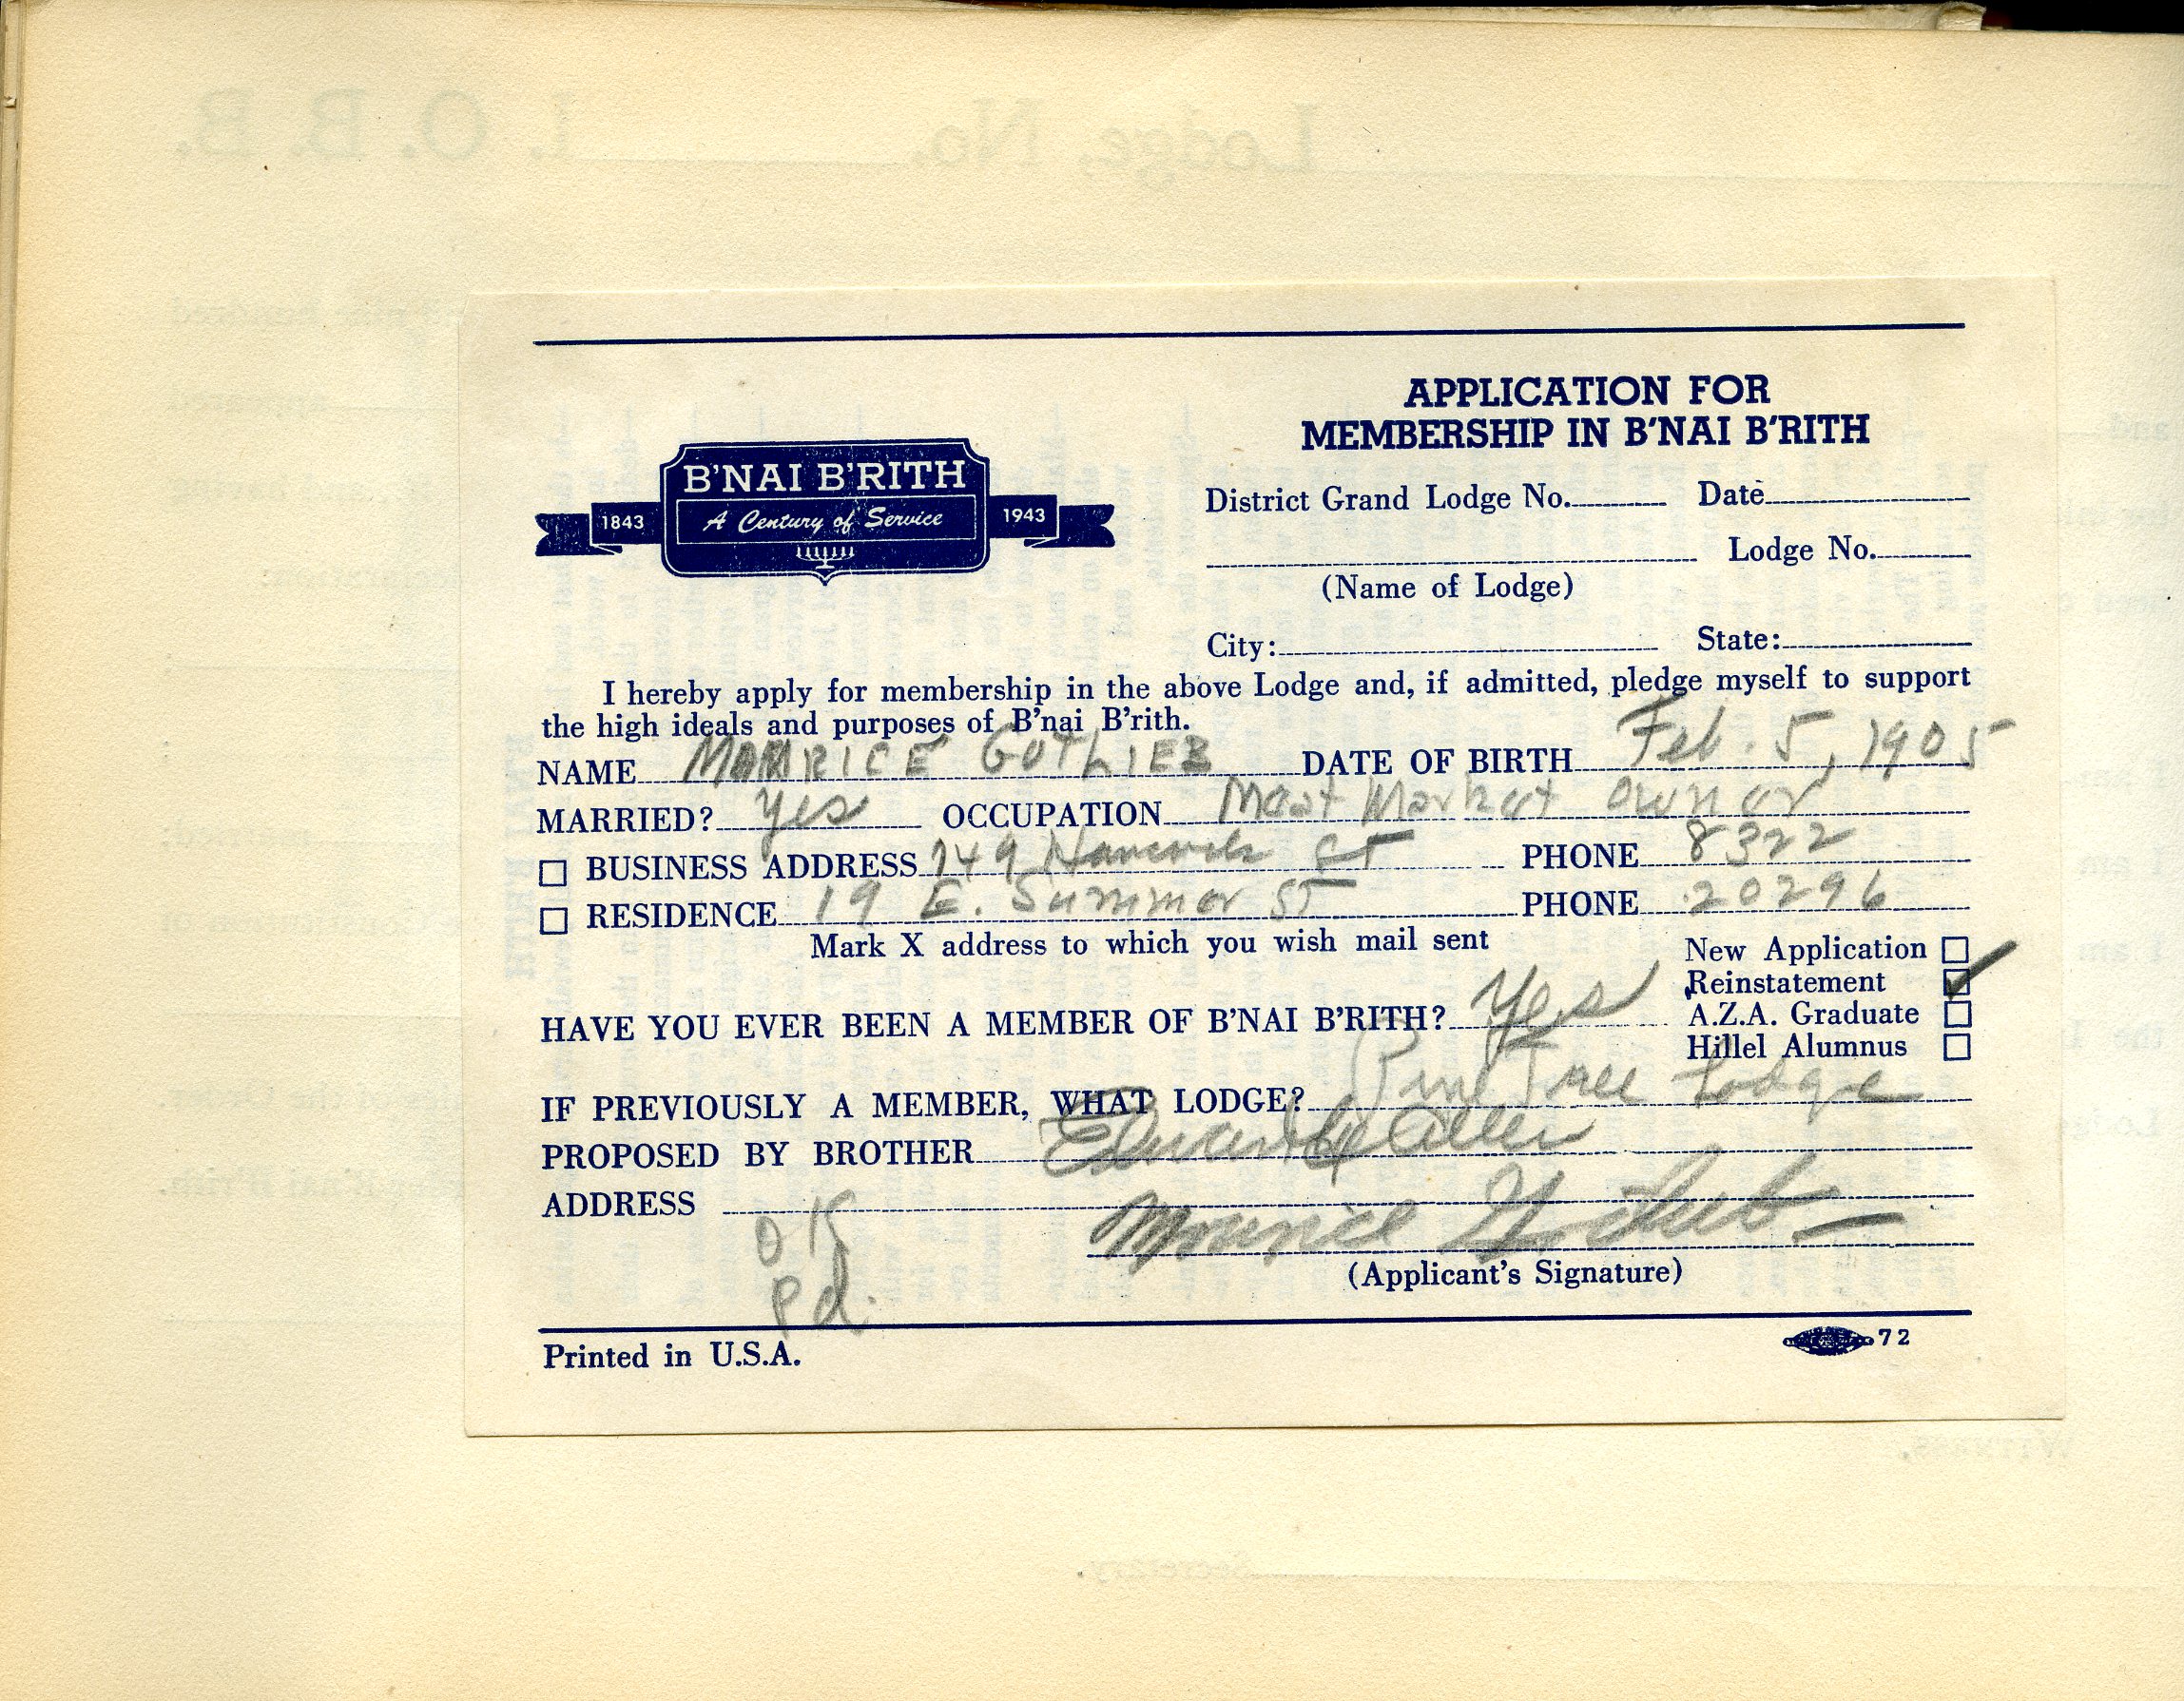 I. O. B. B.
Lodge, No.
APPLICATION FOR
MEMBERSHIP IN B'NAI B'RITH
B'NAI B'RITH
1843 A Century of Service 1943
District Grand Lodge No. Date
Lodge No.
(Name of Lodge)
City: State:
I hereby apply for membership in the above Lodge and, if admitted, pledge myself to support
the high ideals and purposes of B'nai B'rith.
NAME MAURICE GOTLIEB DATE OF BIRTH Feb. 5, 1905
MARRIED? yes OCCUPATION Meat Market Owner
BUSINESS ADDRESS 149 Hancock ST PHONE 8322
RESIDENCE 19 E. Summer ST PHONE 20296
Mark X address to which you wish mail sent
New Application
Reinstatement ✓
A.Z.A. Graduate
Hillel Alumnus
HAVE YOU EVER BEEN A MEMBER OF B'NAI B'RITH? Yes
IF PREVIOUSLY A MEMBER, WHAT LODGE? Pine Tree Lodge
PROPOSED BY BROTHER Edward Allen
ADDRESS
OK
Pd.
Maurice Gotlieb
(Applicant's Signature)
Printed in U.S.A.
72
WITNESS,
Secretary.